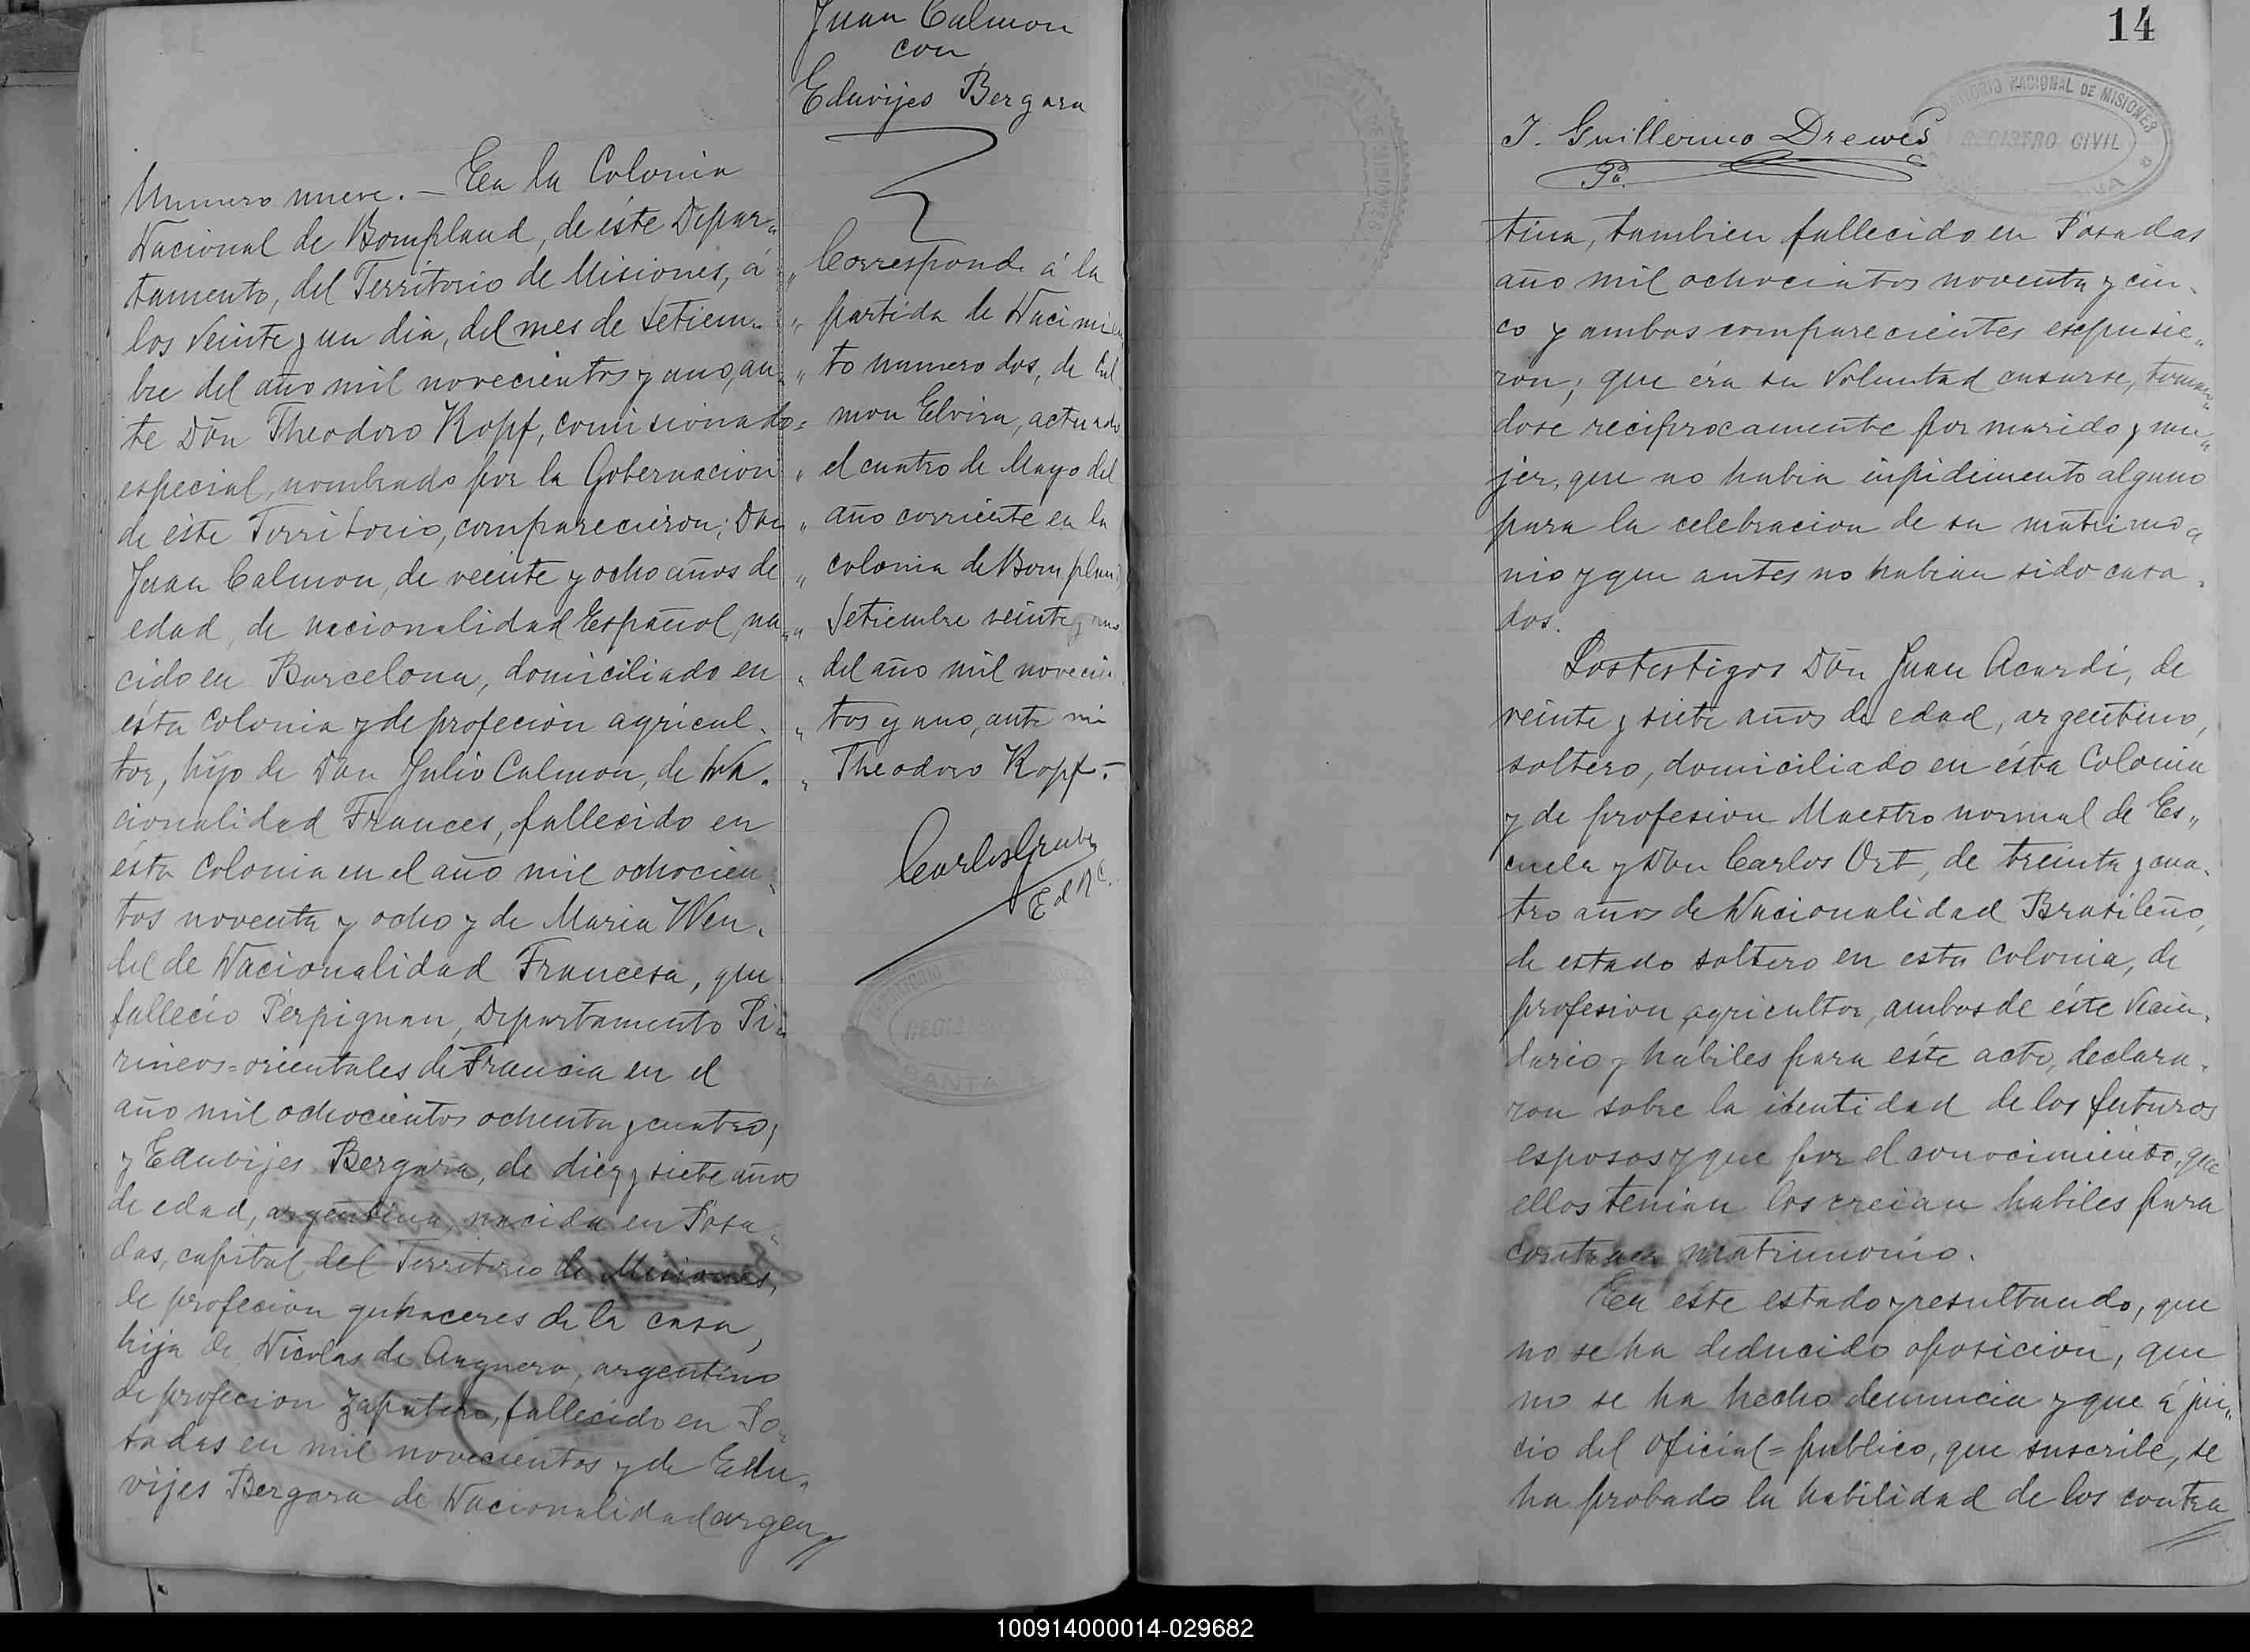 Numero nueve. — En la Colonia
Nacional de Bompland, de éste Depar„
tamento, del Territorio de Misiones, á
los veinte y un dia, del mes de Setiem„
bre del año mil novecientos y uno, an„
te Dōn Theodoro Kopf, comisionado
especial, nombrado por la Gobernacion
de éste Territorio, comparecieron; Don
Juan Calmon, de veinte y ocho años de
edad, de nacionalidad Español, na„
cido en Barcelona, domiciliado en
ésta Colonia y de profecion agricul„
tor, hijo de Don Julio Calmon, de Na„
cionalidad Frances, fallecido en
ésta Colonia en el año mil ochocien„
tos noventa y ocho y de Maria Wen„
del de Nacionalidad Francesa, que
fallecio Perpignan, Departamento Pi„
rineos=orientales de Francia en el
año mil ochocientos ochenta y cuatro;
y Edubijes Bergara, de diez y siete años
de edad, argentina, nacida en Posa„
das, capital del Territorio de Misiones,
de profecion quhaceres de la casa,
hija de Nicolas de Aguero, argentino
de profecion zapatero, fallecido en Po„
sadas en mil novecientos y de Edu„
vijes Bergara de Nacionalidad argen
Juan Calmon
con
Eduvijes Bergara
„ Corresponde á la
„ partida de Nacimien
„ to numero dos, de Cal
„ mon Elvira, actuado
„ el cuatro de Mayo del
„ año corriente en la
„ colonia de Bompland
„ Setiembre veinte y uno
„ del año mil novecien
„ tos y uno, ante mi
„ Theodoro Kopf.-
Carlos
14
TERRITORIO NACIONAL DE MISIONES
REGISTRO CIVIL
J. Guillermo Drewes
tina, tambien fallecido en Posadas
año mil ochocientos noventa y cin„
co y ambos comparecientes escpusie„
ron; que éra su voluntad casarse, toman„
dose reciprocamente por marido y mu„
jer, que no habia inpidimento alguno
para la celebracion de su matrimo„
nio y que antes no habian sido casa„
dos.
Los testigos Dōn Juan Acardi, de
veinte y siete años de edad, argentino,
soltero, domiciliado en ésta Colonia
y de profesion Maestro normal de Es„
cuela y Don Carlos Ort, de treinta y cua„
tro años de Nacionalidad Brasileño,
de estado soltero en esta Colonia, de
profesion agricultor, ambos de éste Vecin„
dario y habiles para éste acto, declara„
ron sobre la identidad de los futuros
esposos y que por el conocimiento, que
ellos tenian los creian habiles para
contraer matrimonio.
En éste estado y resultando, que
no se ha deducido oposicion, que
no se ha hecho denuncia y que á jui„
cio del oficial=publico, que suscribe, se
ha probado la habilidad de los contra
100914000014-029682